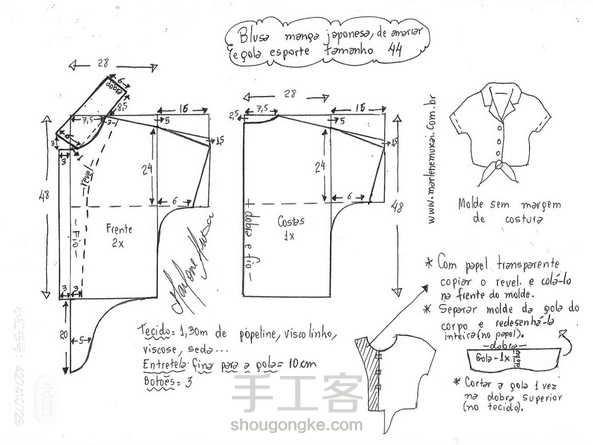 Blusa manga japonesa, de amarrar
e gola esporte tamanho 44
28
6
dobra
8,5
7,5
3
15
5
15
3
3
24
48
revel
6
Frente
2x
Fio
3
3
20
5
Marlene Mukai
28
2,5
7,5
15
5
15
24
6
48
dobra e fio
Costas
1x
www.marlenemukai.com.br
Molde sem margem
de costura
* Com papel transparente
copiar o revel e colá-lo
na frente do molde.
* Separar molde da gola do
corpo e redesenhá-la
inteira (no papel).
dobra
Gola-1x
dobra
* Cortar a gola 1 vez
na dobra superior
(no tecido).
Tecido= 1,30m de popeline, viscolinho,
viscose, seda...
Entretela fina para a gola= 10cm
Botões= 3
手工客
shougongke.com